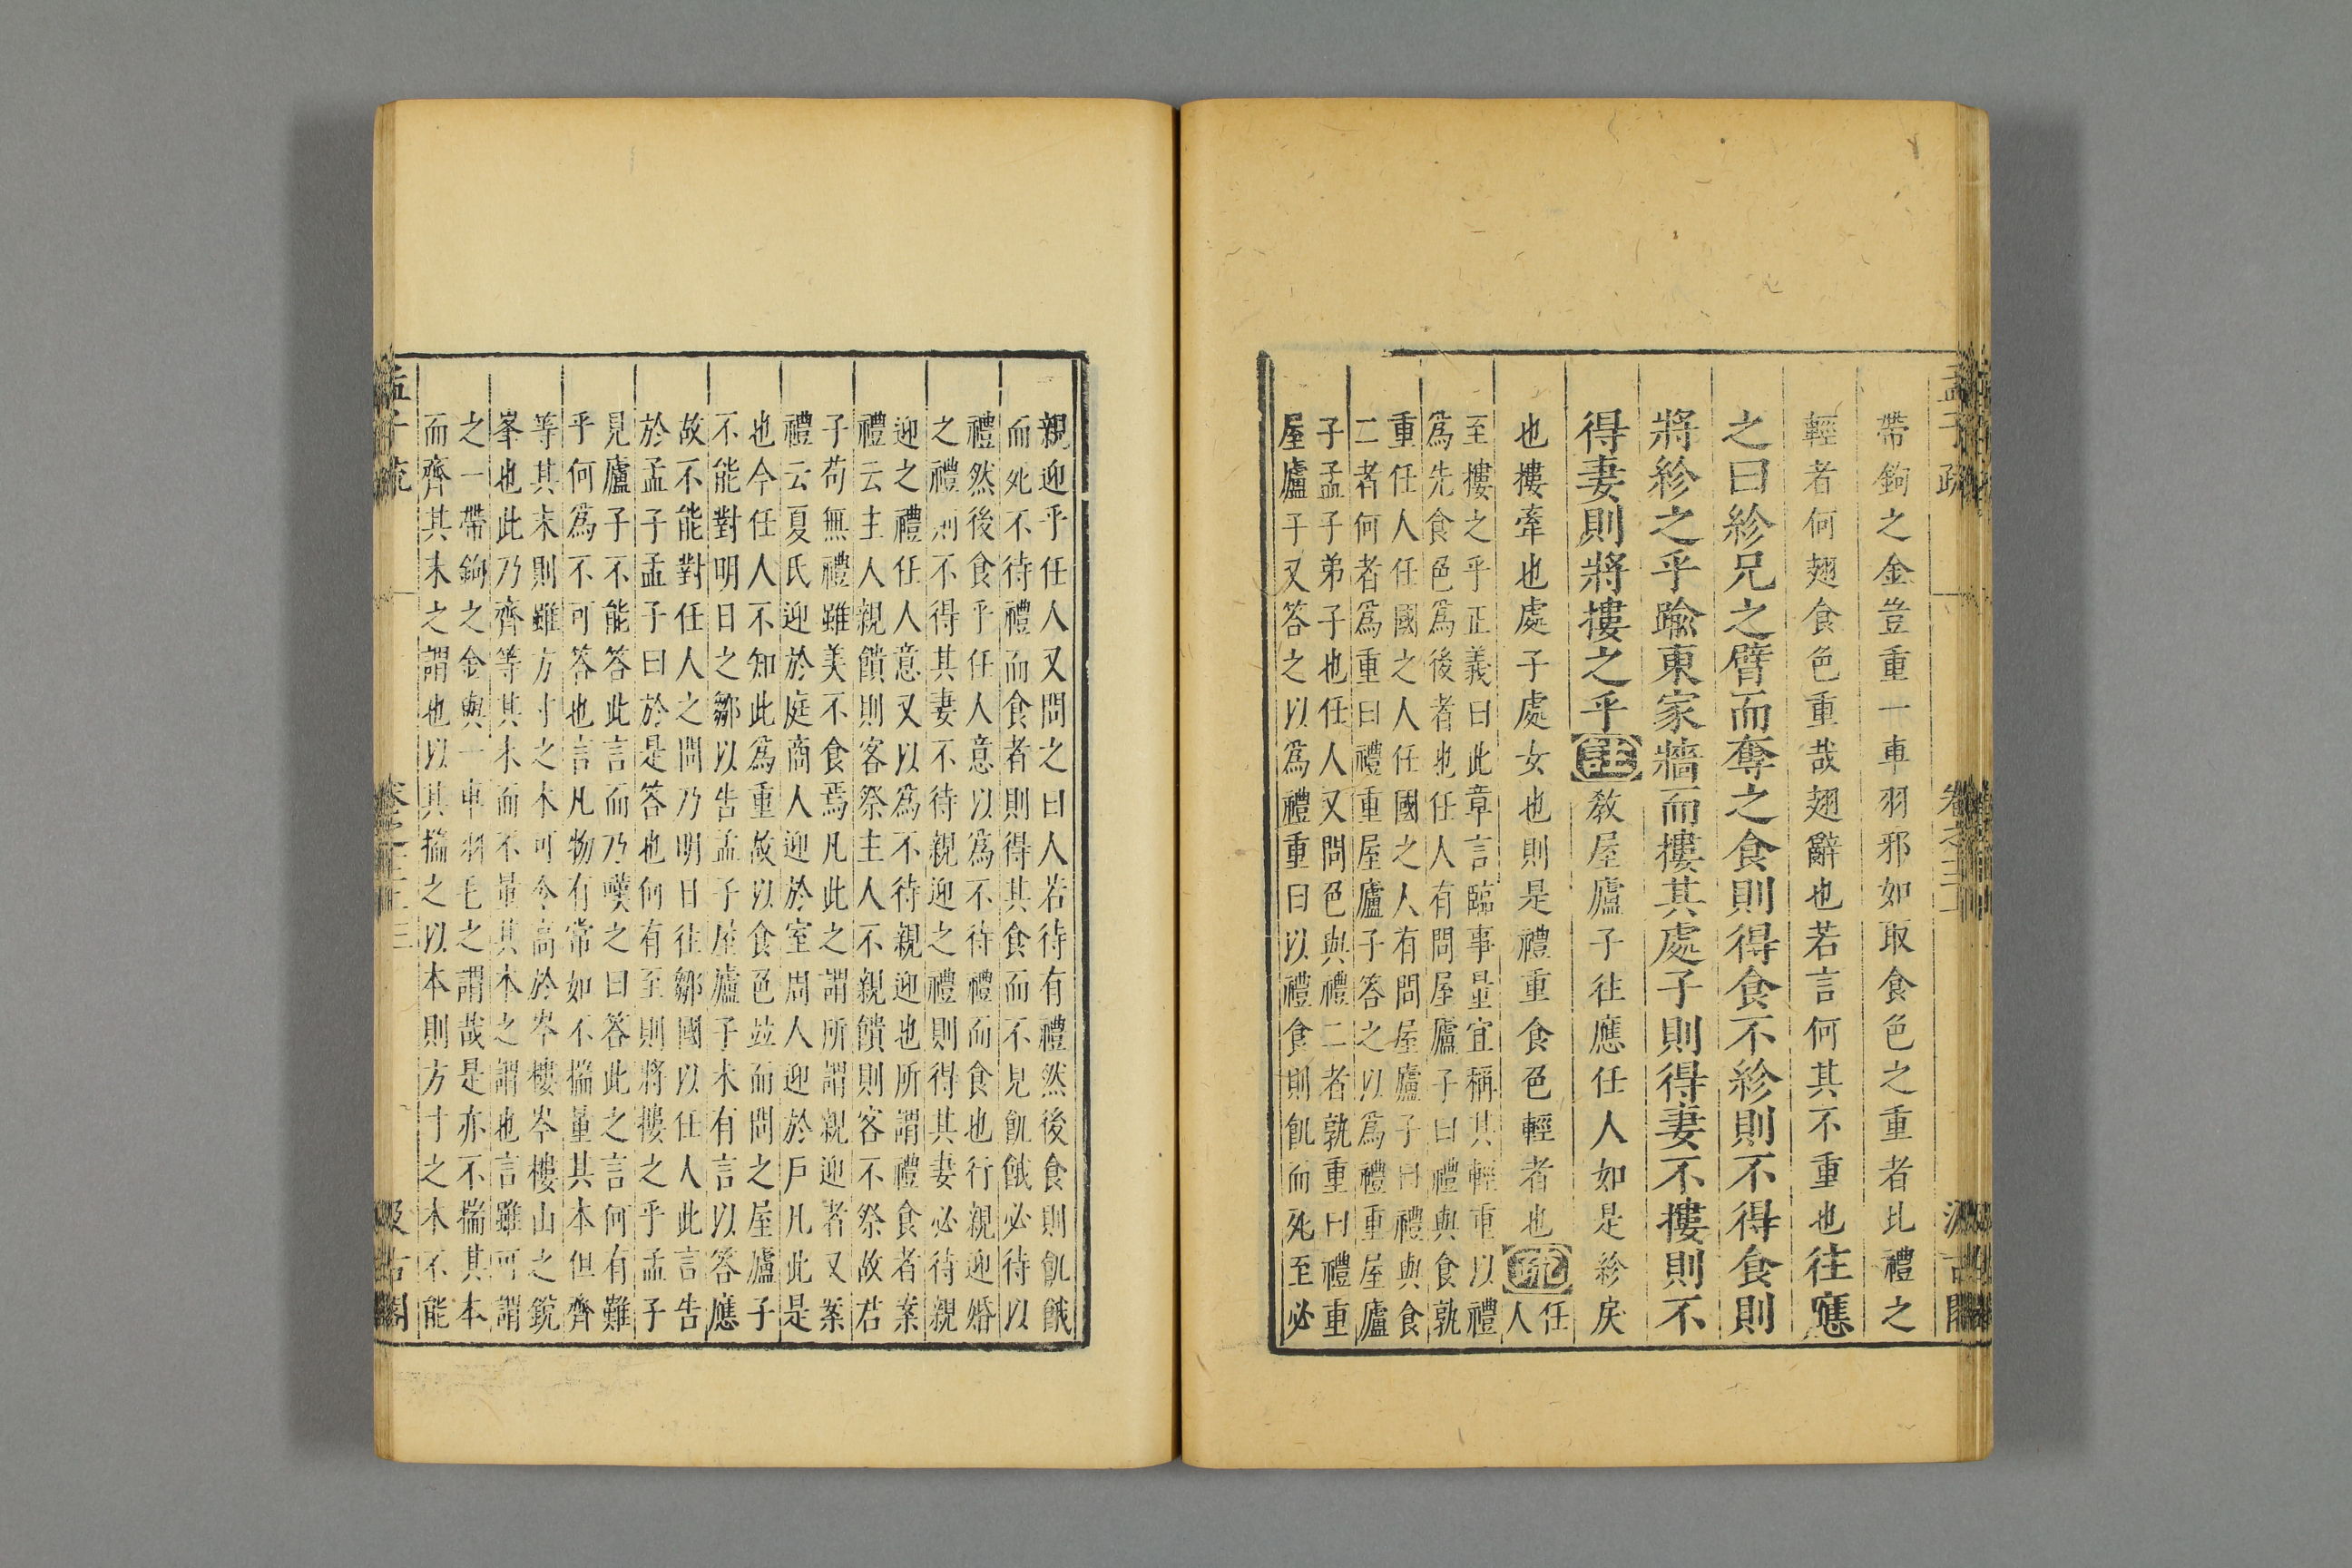 孟子疏
帶鉤之金豈重一車羽邪如取食色之重者比禮之
輕者何翅食色重哉翅辭也若言何其不重也往應
之曰紾兄之臂而奪之食則得食不紾則不得食則
將紾之乎踰東家牆而摟其處子則得妻不摟則不
得妻則將摟之乎註教屋廬子往應任人如是紾戾
也摟牽也處子處女也則是禮重食色輕者也疏任人
至摟之乎正義曰此章言臨事量宜稱其輕重以禮
爲先食色爲後者也任人有問屋廬子曰禮與食孰
重任人任國之人任國之人有問屋廬子曰禮與食
二者何者爲重曰禮重屋廬子答之以爲禮重屋廬
子孟子弟子也任人又問色與禮二者孰重曰禮重
屋廬子又答之以爲禮重曰以禮食則飢而死至必
親迎乎任人又問之曰人若待有禮然後食則飢餓
而死不待禮而食者則得其食而不見飢餓必待以
禮然後食乎任人意以爲不待禮而食也行親迎婚
之禮則不得其妻不待親迎之禮則得其妻必待親
迎之禮任人意又以爲不待親迎也所謂禮食者案
禮云主人親饋則客祭主人不親饋則客不祭故君
子苟無禮雖美不食焉凡此之謂所謂親迎者又案
禮云夏氏迎於庭商人迎於室周人迎於戶凡此是
也今任人不知此爲重故以食色並而問之屋廬子
不能對明日之鄒以告孟子屋廬子未有言以答應
故不能對任人之問乃明日往鄒國以任人此言告
於孟子孟子曰於是答也何有至則將摟之乎孟子
見廬子不能答此言而乃嘆之曰答此之言何有難
乎何爲不可答也言凡物有常如不揣量其本但齊
等其末則雖方寸之木可令高於岑樓岑樓山之銳
峯也此乃齊等其末而不量其本之謂也言雖可謂
之一帶鉤之金與一車羽毛之謂哉是亦不揣其本
而齊其末之謂也以其揣之以本則方寸之本不能